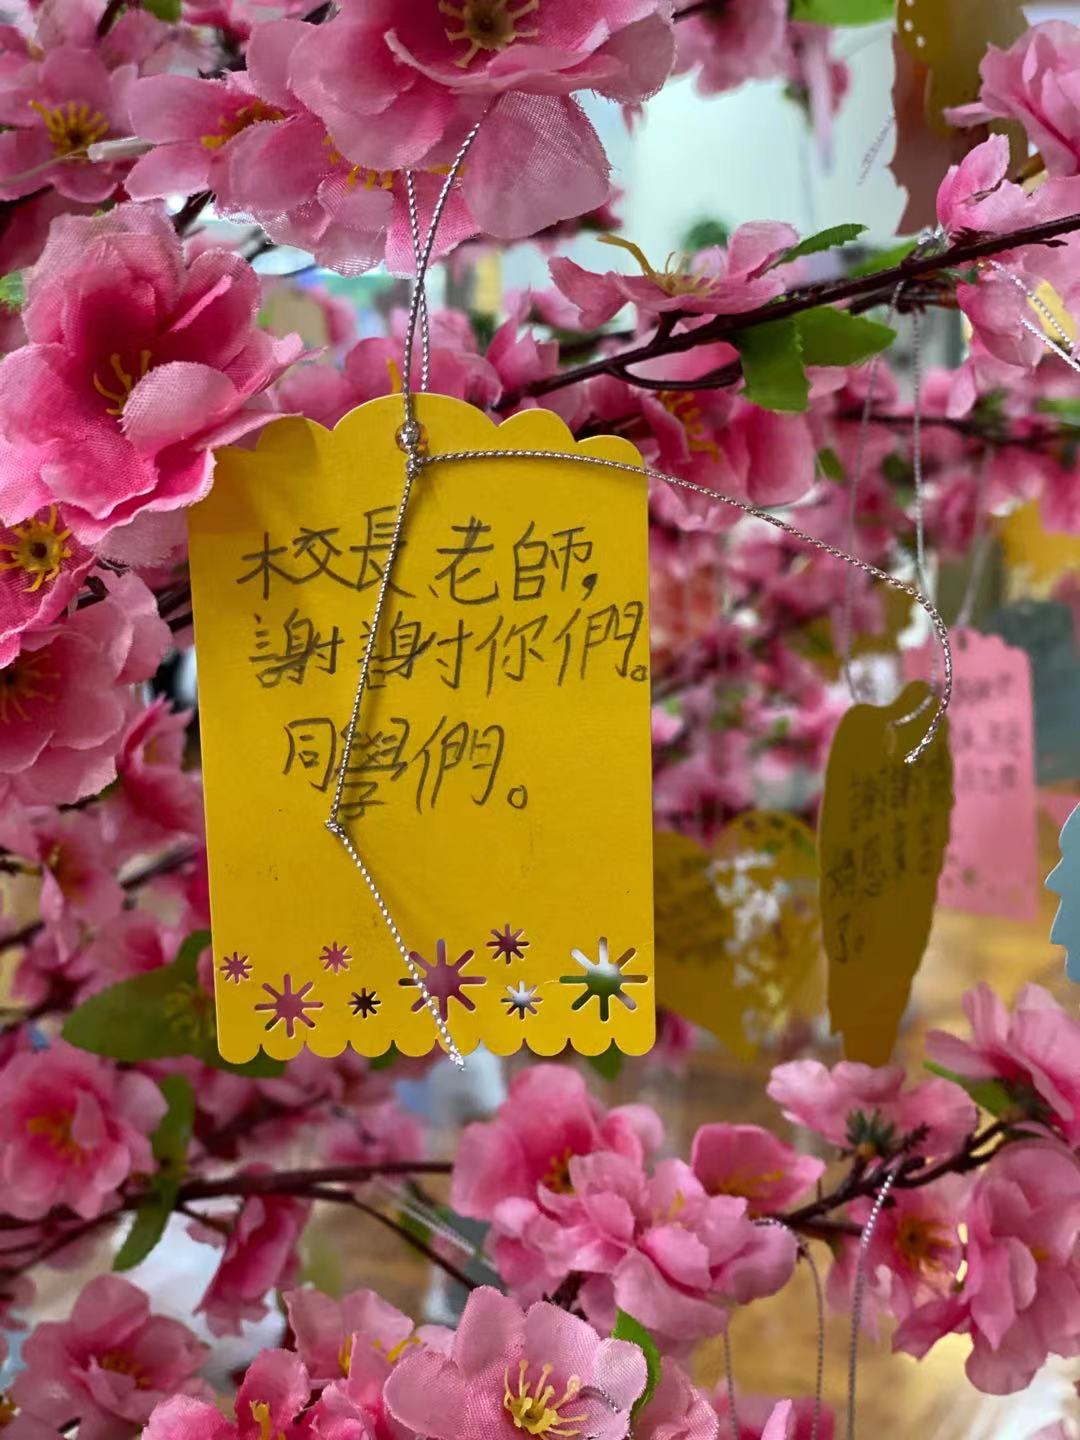 校長老師，
謝謝你們。
同學們。